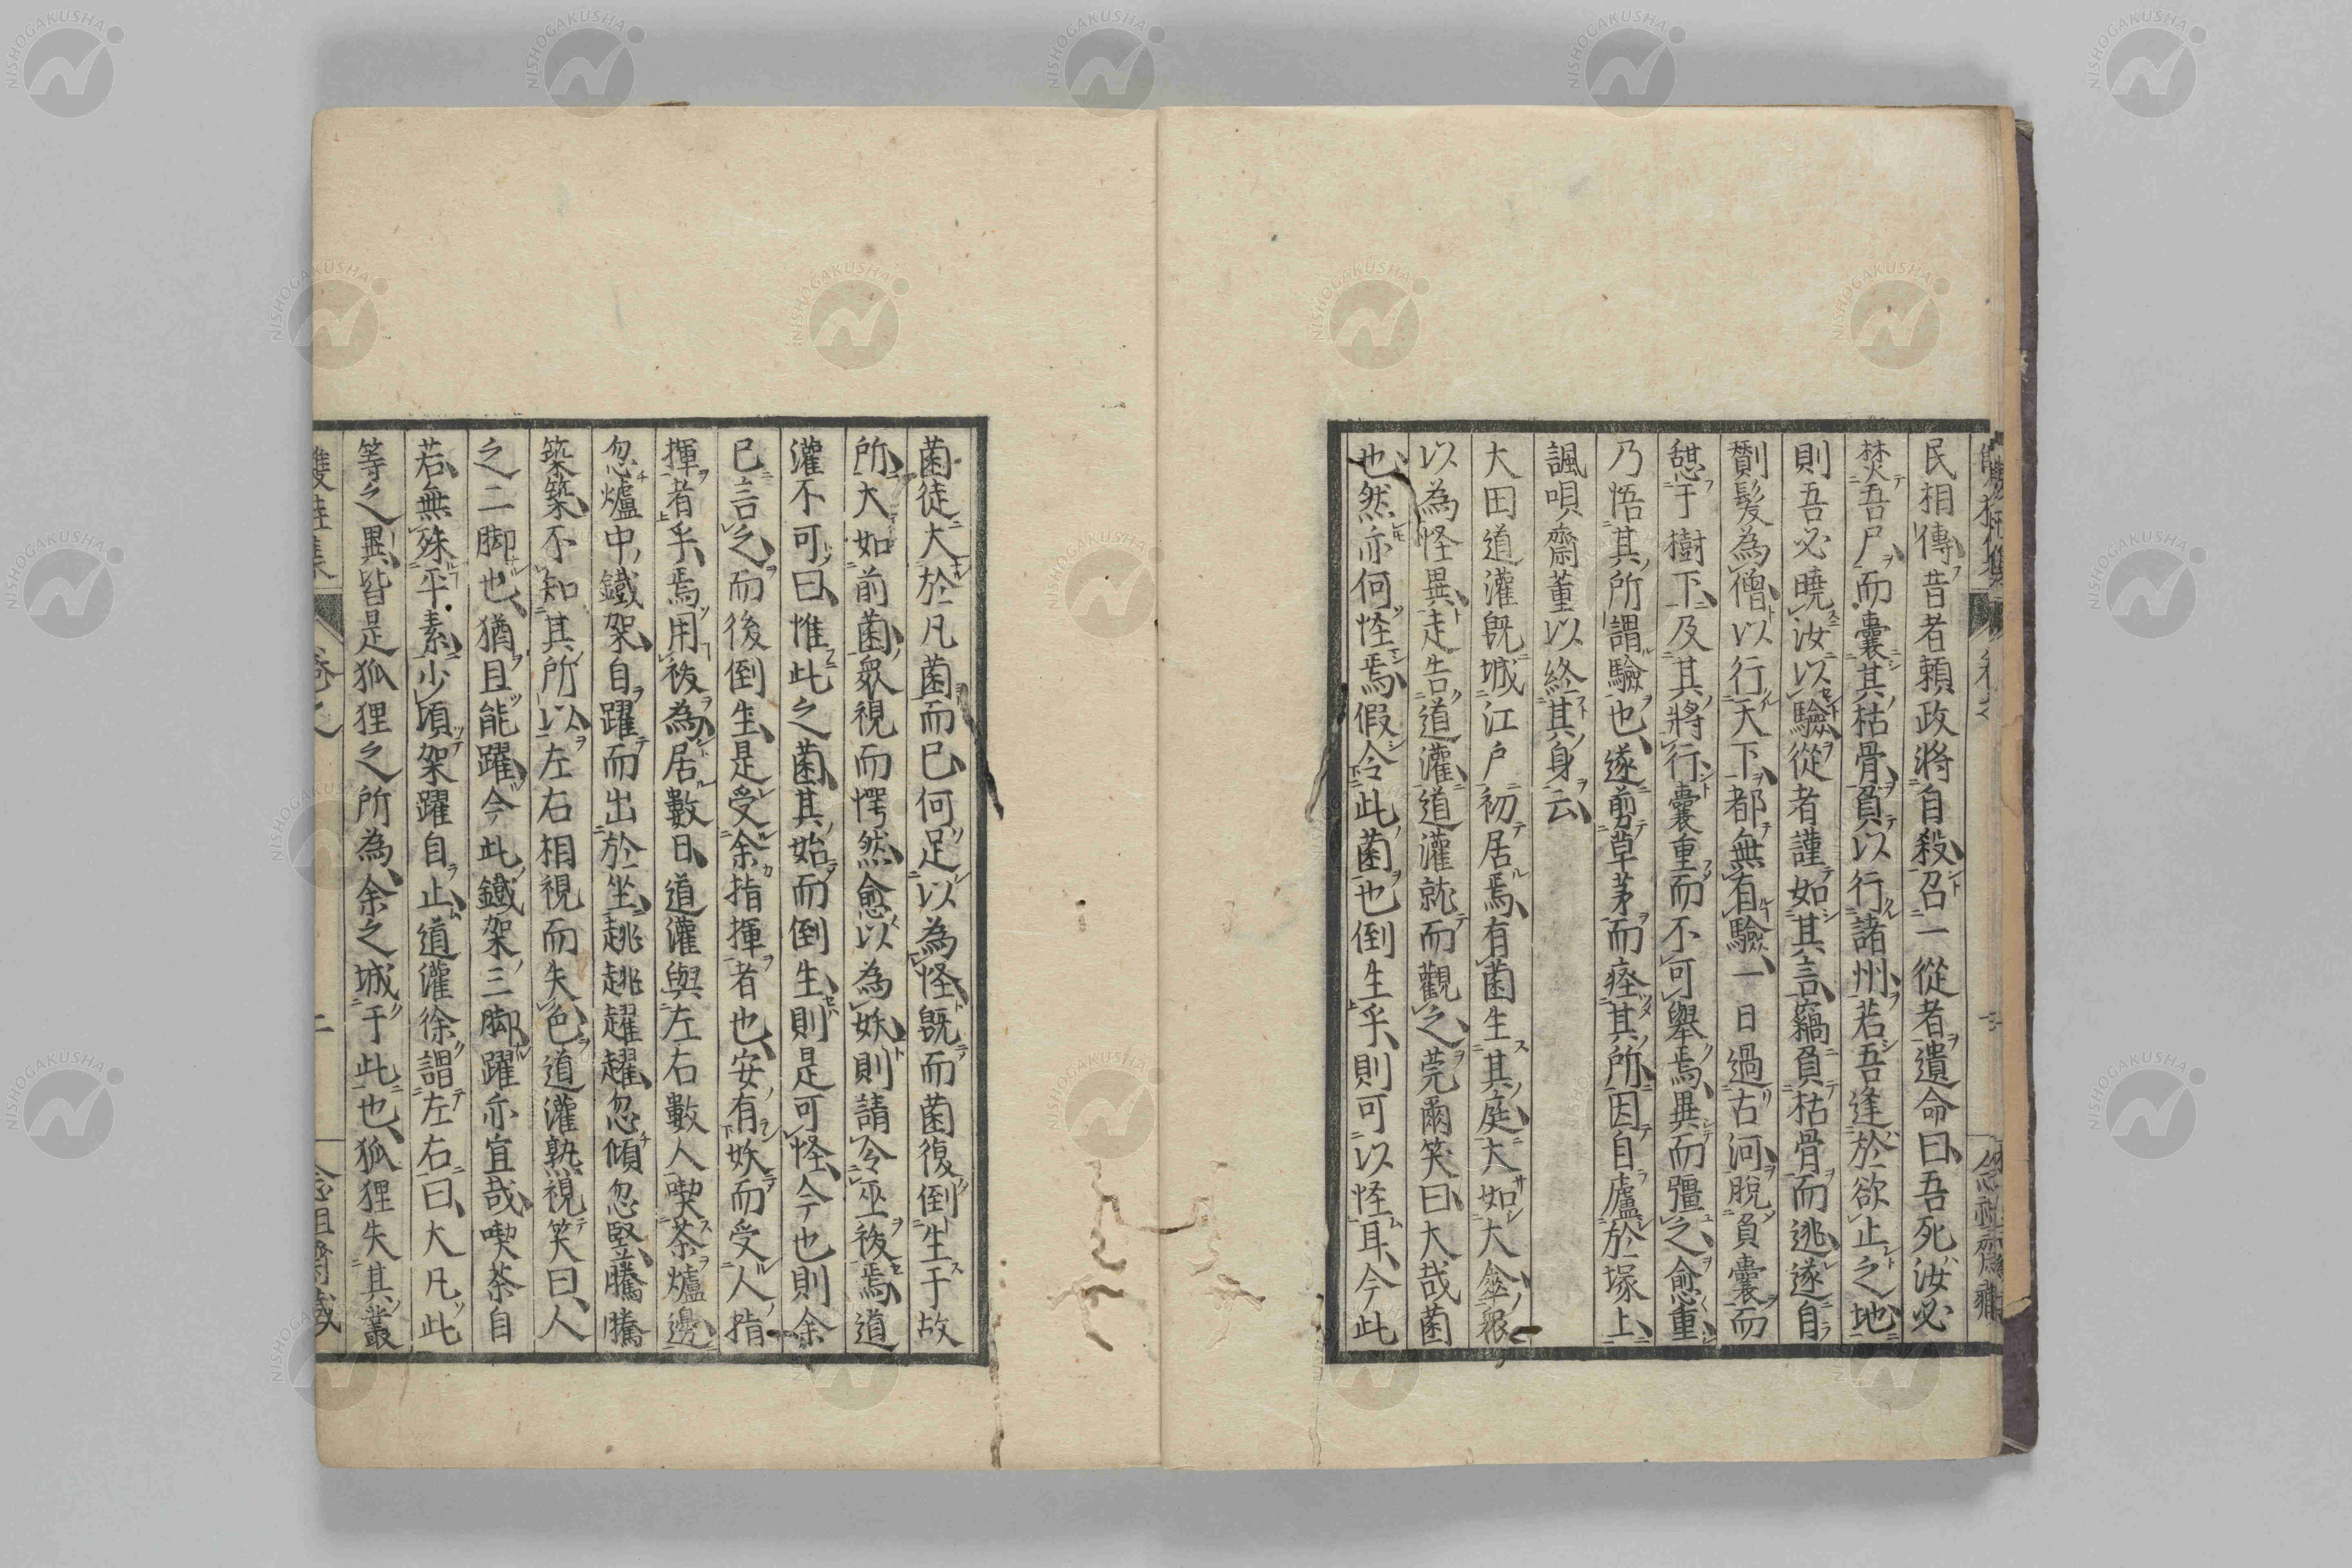 民相傳昔者頼政將自殺召一從者遺命曰吾死汝必
焚吾尸而囊其枯骨負以行諸州若吾逢於欲止之地
則吾必曉汝以驗從者謹如其言竊負枯骨而逃遂自
鬀髮為僧以行天下都無有驗一日過古河脫負囊而
憇于樹下及其將行囊重而不可舉焉異而彊之愈重
乃悟其所謂驗也遂剪草茅而痊其所因自廬於塚上
諷唄齋董以終其身云
大田道灌既城江戸初居焉有菌生其庭大如大傘衆
以為怪異走告道灌道灌就而觀之莞爾笑曰大哉菌
也然亦何怪焉假令此菌也倒生乎則可以怪耳今此
菌徒大於凡菌而已何足以為怪既而菌復倒生于故
所大如前菌衆視而愕然愈以為妖則請令巫祓焉道
灌不可曰惟此之菌其始而倒生則是可怪今也則余
已言之而後倒生是受余指揮者也安有妖而受人指
揮者乎焉用祓為居數日道灌與左右數人喫茶爐邊
忽爐中鐵架自躍而出於坐趒趒趯趯忽傾忽竪騰騰
築築不知其所以左右相視而失色道灌熟視笑曰人
之二脚也猶且能躍今此鐵架三脚躍亦宜哉喫茶自
若無殊平素少頃架躍自止道灌徐謂左右曰大凡此
等之異皆是狐狸之所為余之城于此也狐狸失其叢
NISHOGAKUSHA